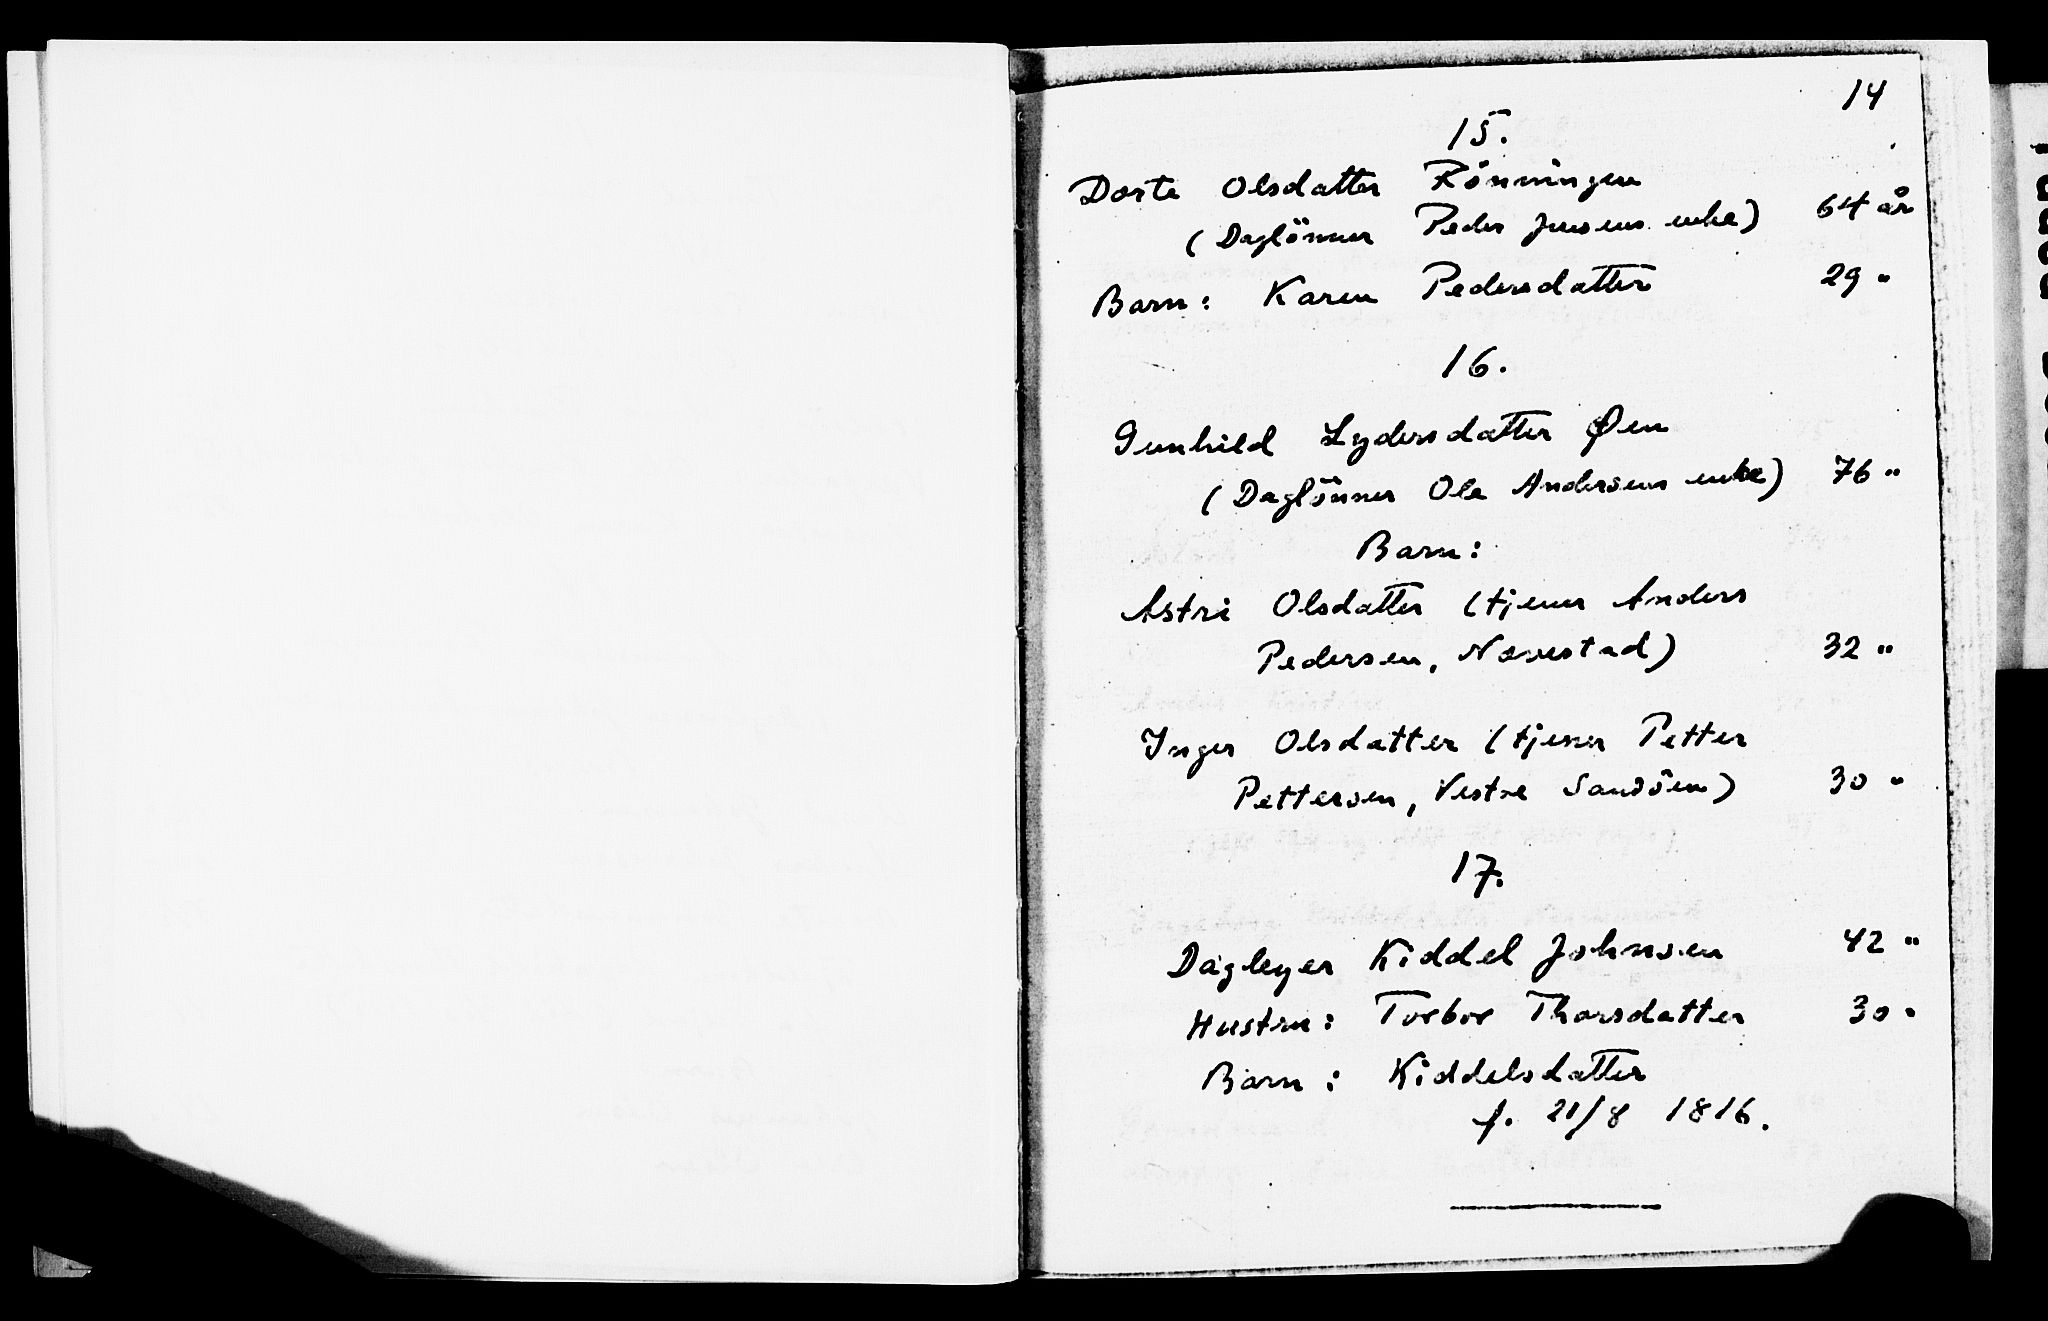 14
15.
Dorte Olsdatter Rönningen
(Daglönner Peder Jensens enke) 64 år
Barn: Karen Pedersdatter 29 "
16.
Gunhild Lydersdatter Øen
(Daglönner Ole Andersens enke) 76 "
Barn:
Astri Olsdatter (tjener Anders
Pedersen, Næverstad) 32 "
Inger Olsdatter (tjener Petter
Pettersen, Vestre Sandöen) 30 "
17.
Dagleyer Kiddel Johnsen 42 "
Hustru: Torbor Thorsdatter 30 "
Barn: Kiddelsdatter
f. 21/8 1816.